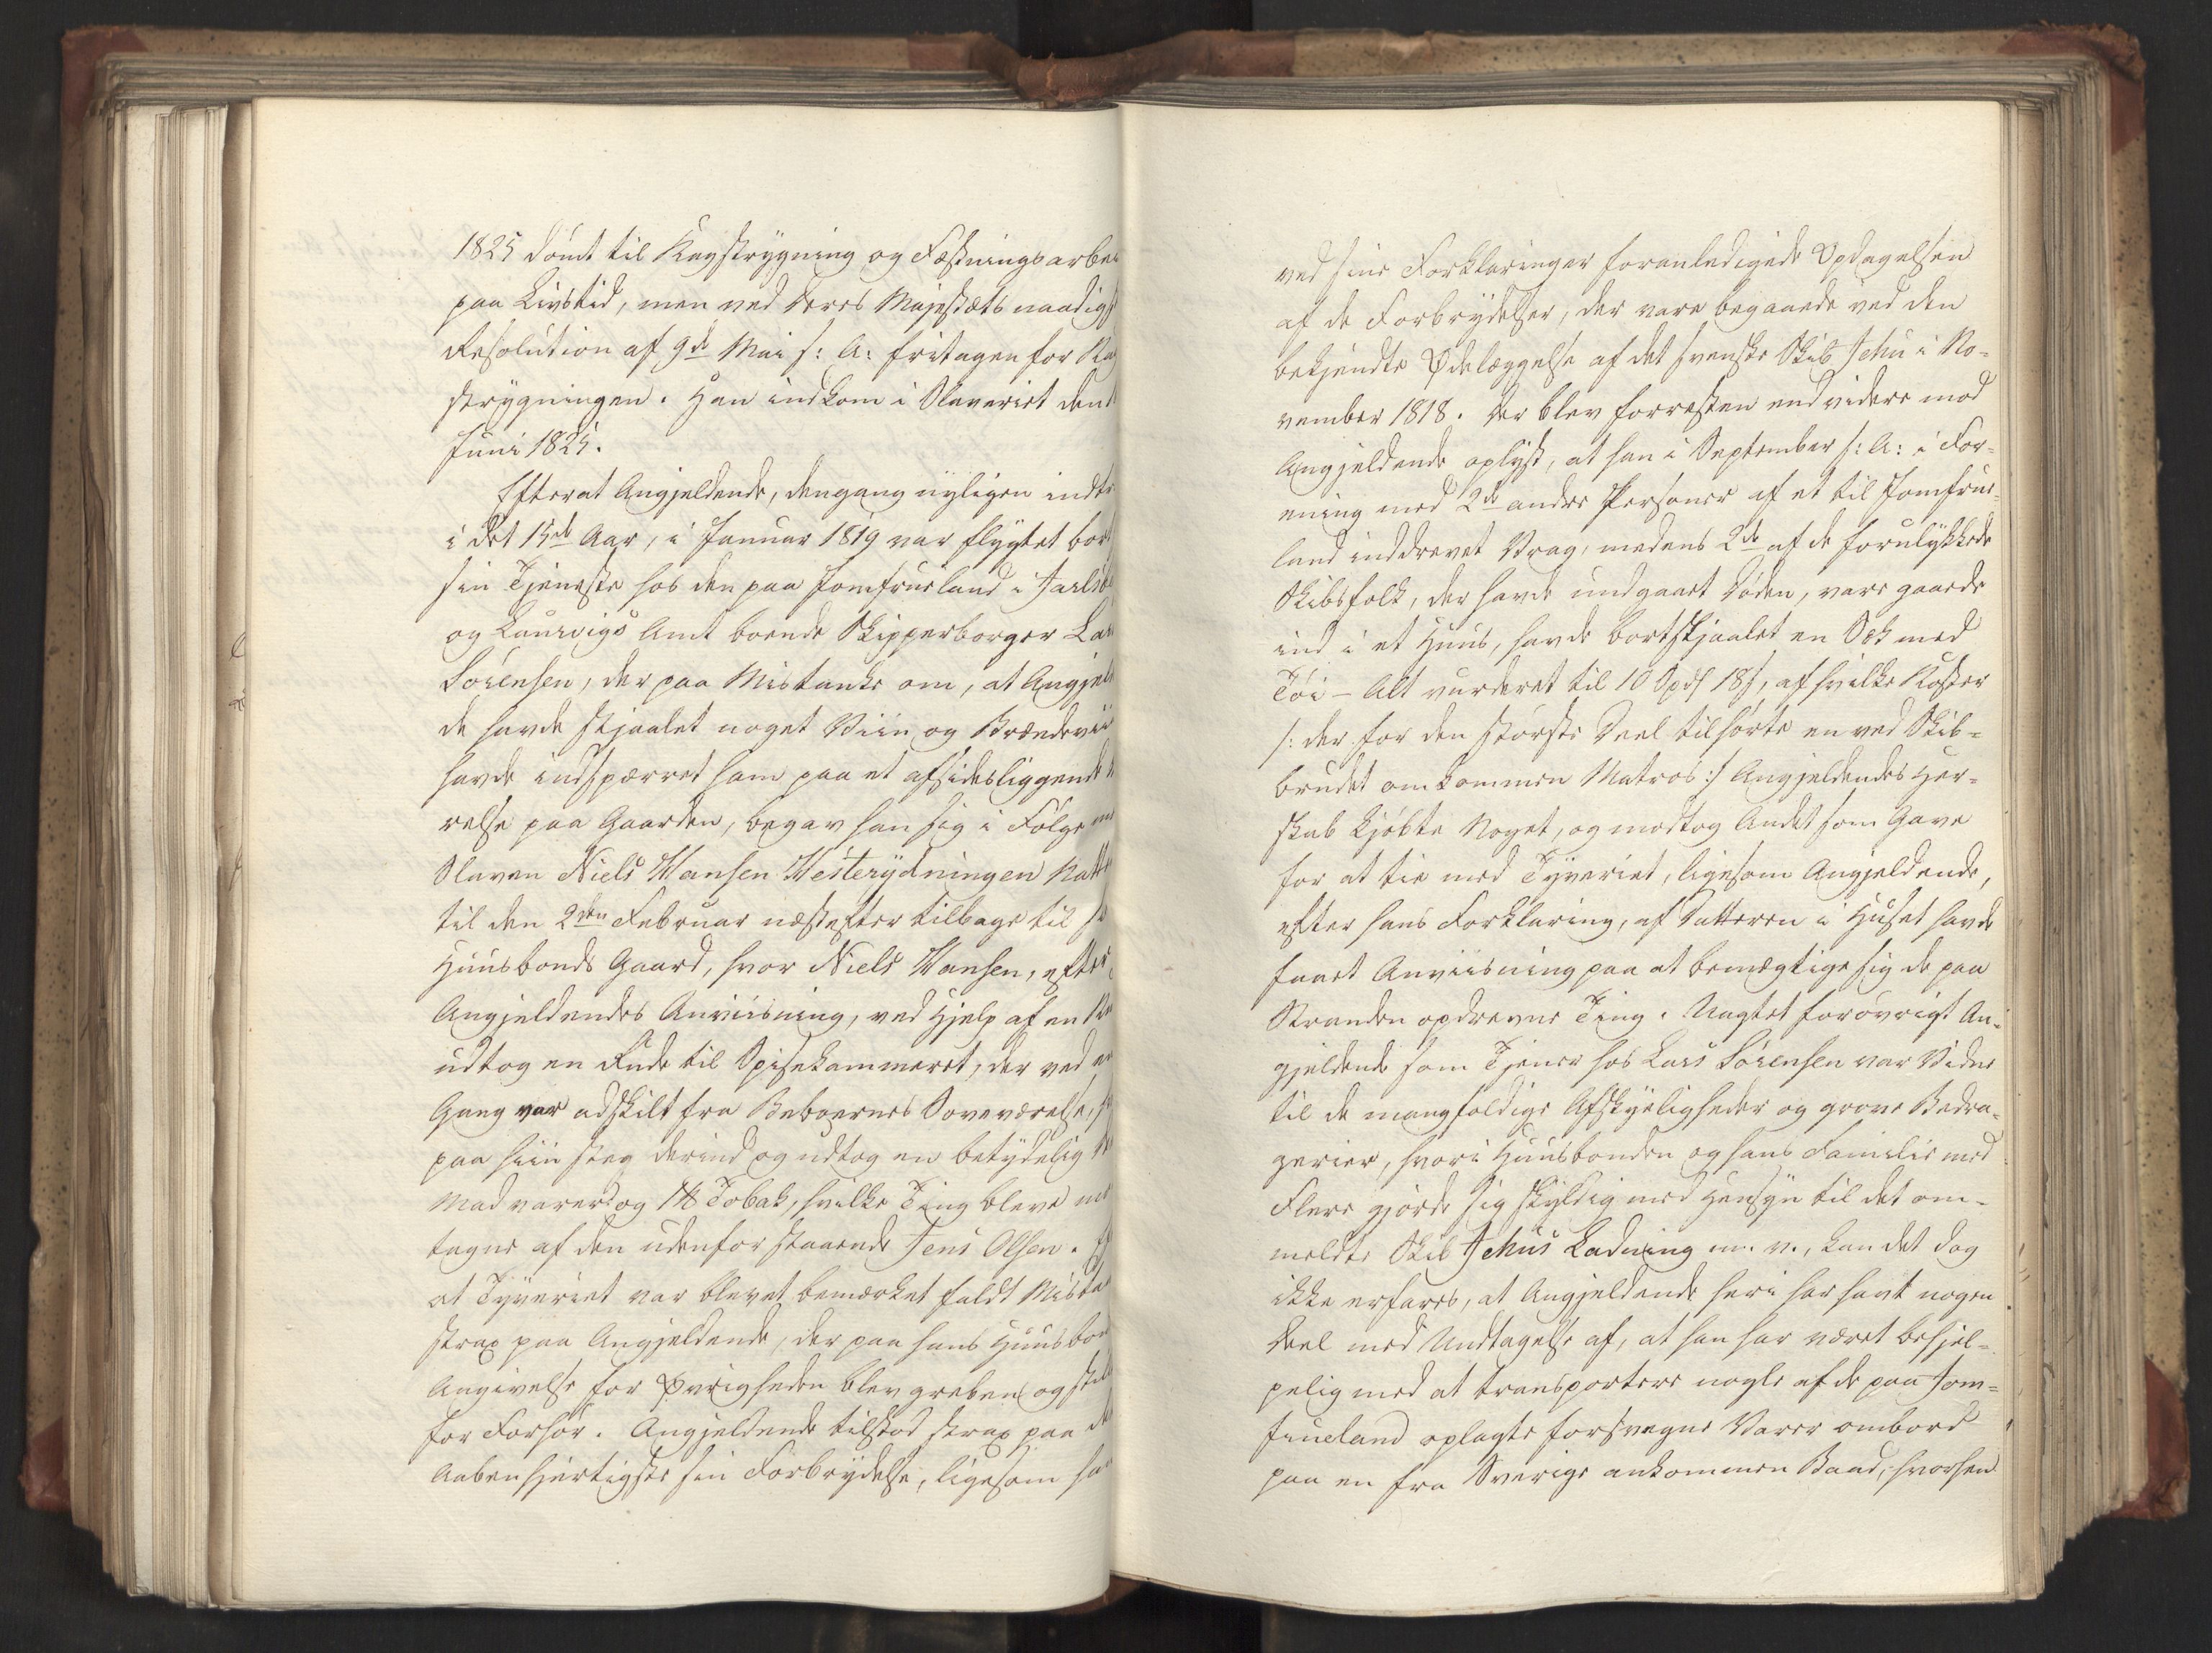 1825 dömt til Kagstrygning og Fæstningsarbei
paa Livstid, men ved Deres Majestæts naadigst
Resolution af 9de Mai s: A: fritagen for Kag
strygningen. Han indkom i Slaveriet den
Juni 1825.
Efterat Angjeldende, dengang nyligen indtr
i det 15de Aar, i Januar 1819 var flygtet bort
sin Tjeneste hos den paa Jomfrueland i Jarlsbe
og Laurvigs Amt boende Skipperborger Lars
Sörensen, der paa Mistanke om, at Angjeld
de havde stjaalet noget Viin og Brændeviin
havde indspærret ham paa et afsidesliggende
relse paa Gaarden, begav han sig i Fölge me
Slaven Niels Hansen Westerydningen Natt
til den 2den Februar næstefter tilbage til s
Huusbonds Gaard, hvor Niels Hansen, efter
Angjeldendes Anviisning, ved Hjelp af en
udtog en Rude til Spisekammeret, der ved en
Gang var adskilt fra Beboernes Soveværelse, h
paa hiin steg derind og udtog en betydelig
Madvarer og 1 ℔ Tobak, hvilke Ting bleve mo
tagne af den udenfor staaende Jens Olsen. Ef
at Tyveriet var blevet bemærket faldt Mista
strax paa Angjeldende, der paa hans Huusbon
Angivelse for Øvrigheden blev greben og stil
for Forhör. Angjeldende tilstod strax paa de
aabenhjertigste sin Forbrydelse, ligesom han
ved sine Forklaringer foranledigede Opdagelsen
af de Forbrydelser, der vare begaaede ved den
bekjendte Ødelæggelse af det svenske Skib Jehu i No-
vember 1818. Der blev forresten endvidere mod
Angjeldende oplyst, at han i September s: A: i For-
ening med 2de andre Personer af et til Jomfrue-
land inddrevet Vrag, medens 2de af de forulykkede
Skibsfolk, der havde undgaaet Döden, vare gaaede
ind i et Huus, havde bortstjaalet en Sæk med
Töi - Alt vurderet til 10 Spd 18 s, af hvilke Koster
/: der for den störste Deel tilhörte en ved Skib-
brudet omkommen Matros :/ Angjeldendes Her-
skab kjöbte Noget, og modtog Andet som Gave
for at tie med Tyveriet, ligesom Angjeldende,
efter hans Forklaring, af Datteren i Huset havde
faaet Anviisning paa at bemægtige sig de paa
Stranden opdrevne Ting. Uagtet forövrigt An-
gjeldende som Tjener hos Lars Sörensen var Vidne
til de mangfoldige Afskyeligheder og grove Bedra-
gerier, hvori Huusbonden og hans Familie med
Flere gjorde sig skyldig med Hensyn til det om-
meldte Skib Jehus Ladning m. v., kan det dog
ikke erfares, at Angjeldende heri har havt nogen
Deel med Undtagelse af, at han har været behjel-
pelig med at transportere nogle af de paa Jom-
frueland oplagte forsvegne Varer ombord
paa en fra Sverige ankommen Baad, hvorhen